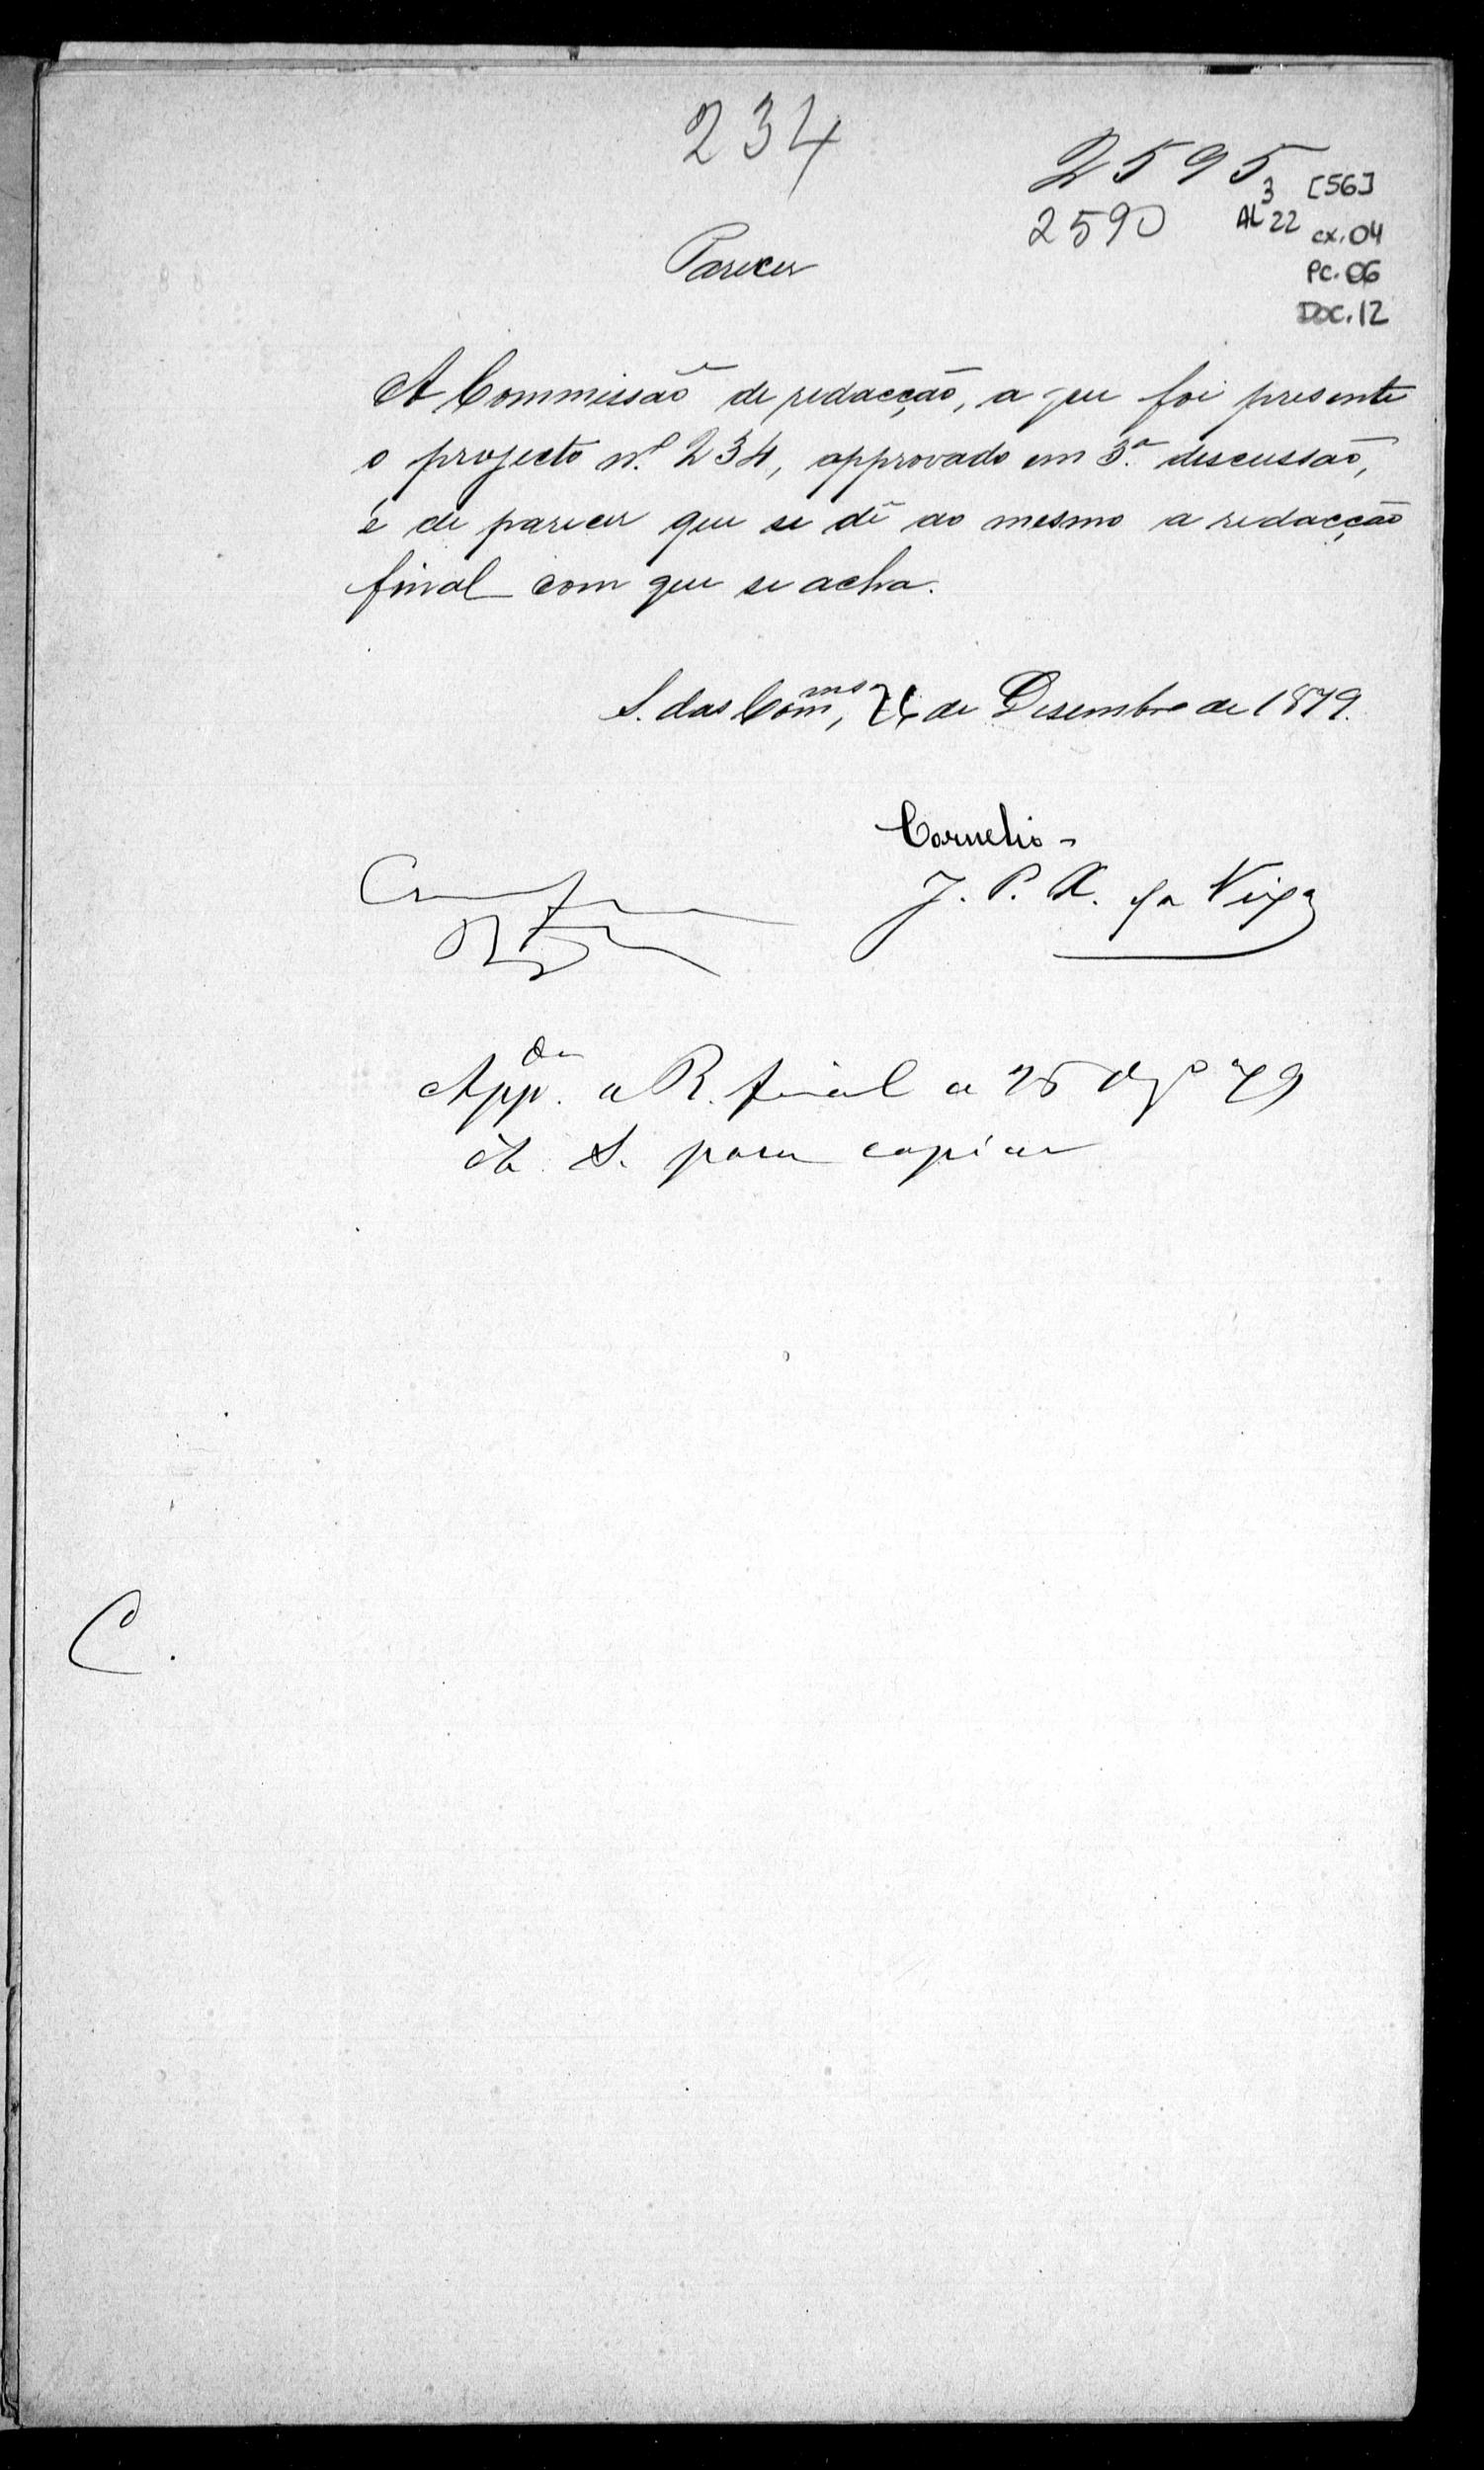 234
2595
3 [56]
2590 AL 22 cx.04
PC.06
DOC.12
Parecer
A Commissão de redacção, a que foi presente
o projecto n.º 234, approvado em 3.ª discussão,
é de parecer que se dê ao mesmo a redacção
final com que se acha.
S. das Com.ms, de Desembro de 1879.
Cornelio -
J. P. X. da Veiga
App.da a R. final a 26 Dzº 79
Á S. para copiar
C.